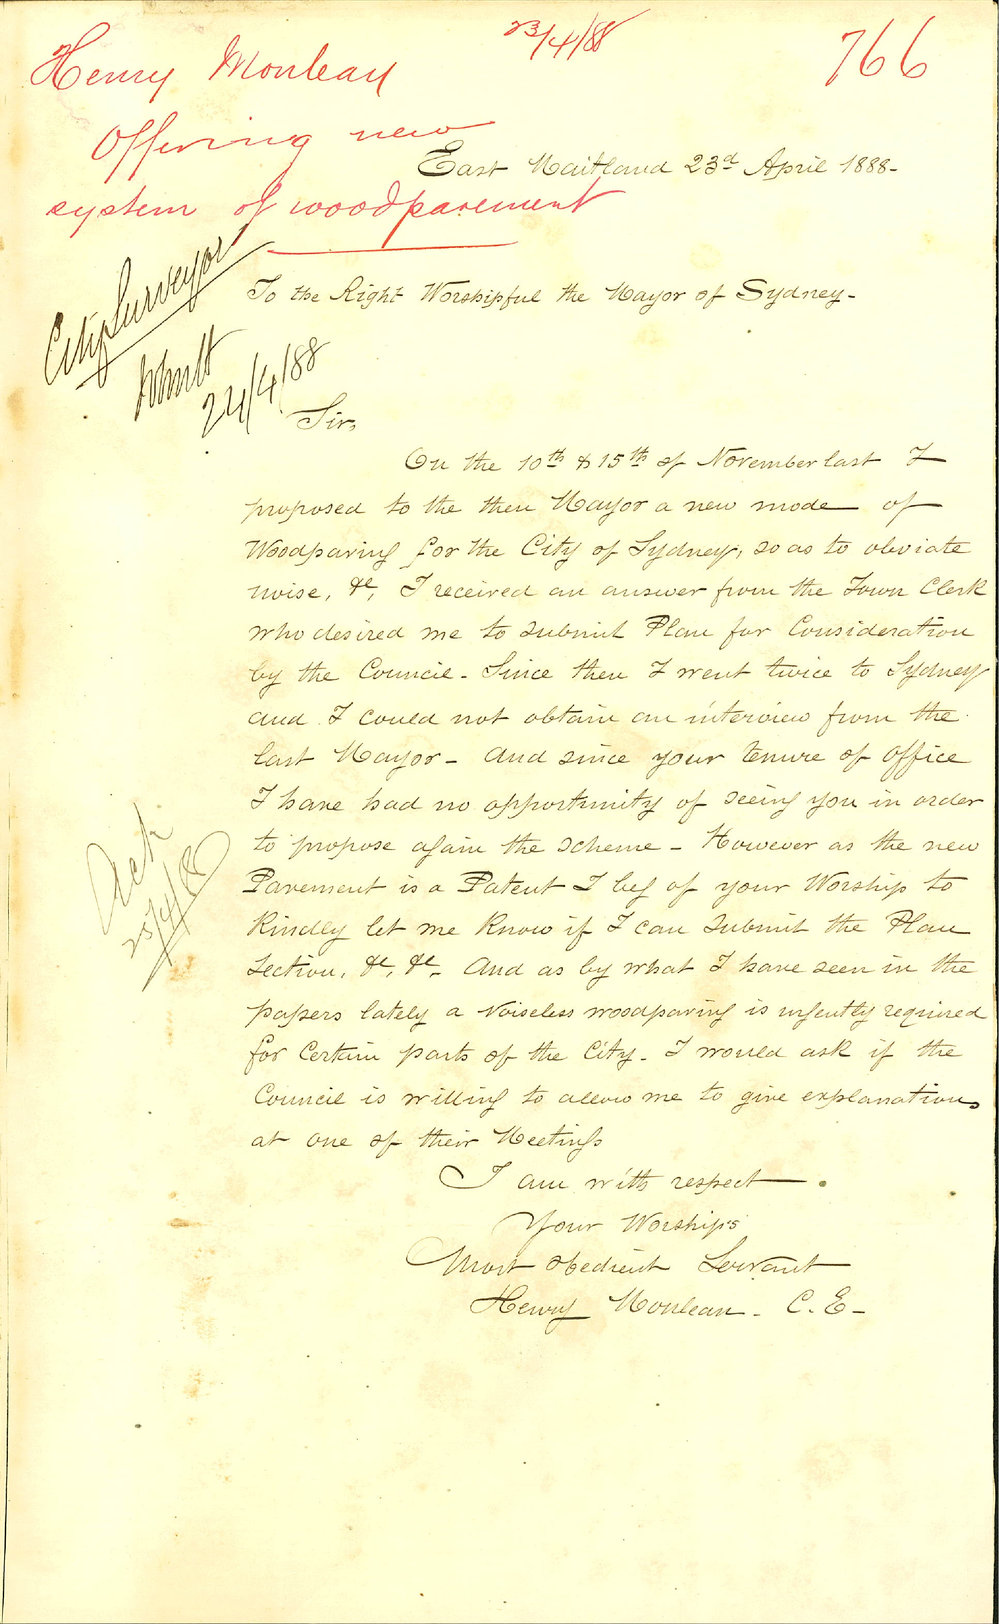 23/4/88
766
Henry Moulean
Offering new
system of woodpavement
East Maitland 23d April 1888-
City Surveyor
24/4/88
To the Right Worshipful the Mayor of Sydney-
Sir,
On the 10th & 15th of November last I
proposed to the then Mayor a new mode of
Woodpaving for the City of Sydney, so as to obviate
noise, &c, I received an answer from the Town Clerk
who desired me to submit Plan for Consideration
by the Council - Since then I went twice to Sydney
and I could not obtain an interview from the
last Mayor - And since your tenure of office
I have had no opportunity of seeing you in order
to propose again the scheme - However as the new
Pavement is a Patent I beg of your Worship to
Kindly let me Know if I can submit the Plan
Section, &c, &c - And as by what I have seen in the
papers lately a Noiseless woodpaving is urgently required
for Certain parts of the City - I would ask if the
Council is willing to allow me to give explanations
at one of their Meetings
Ack
25/4/88
I am with respect
Your Worship's
Most obedient Servant
Henry Moulean - C. E-